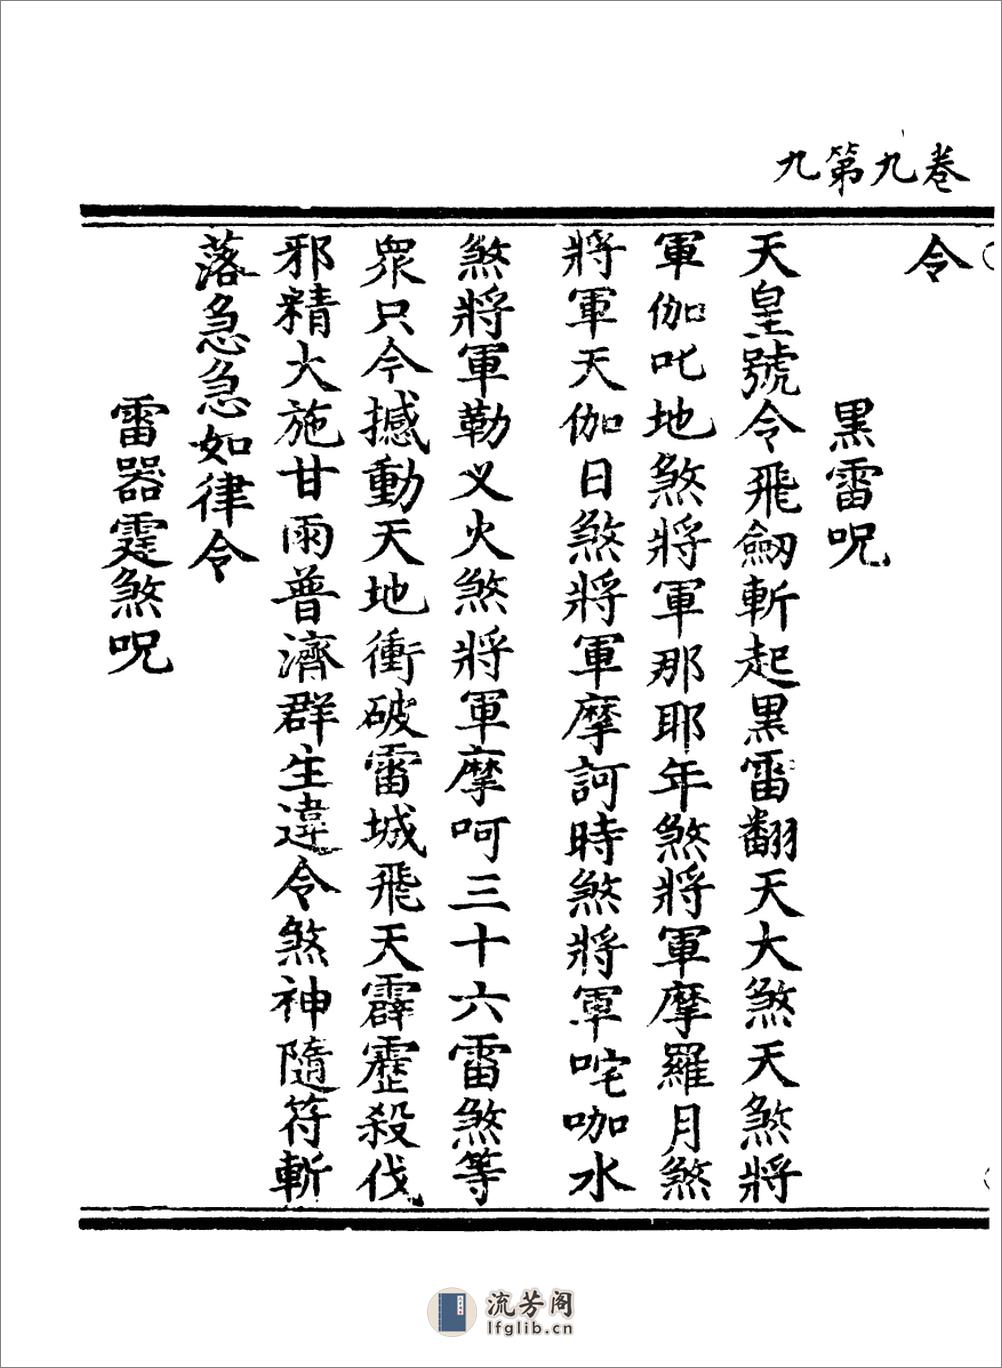 九第九卷
令
黑雷呪
天皇號令飛劒斬起黑雷翻天大煞天煞將
軍伽吒地煞將軍那耶年煞將軍摩羅月煞
將軍天伽日煞將軍摩訶時煞將軍咤咖水
煞將軍勒义火煞將軍摩呵三十六雷煞等
眾只今撼動天地衝破雷城飛天霹靂殺伐
邪精大施甘雨普濟群生違令煞神隨符斬
落急急如律令
雷器霆煞呪
流芳阁
lfglib.cn